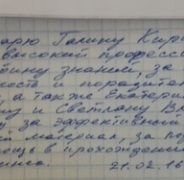 арю Галину Кир
высокий професс
бину знаний, за
кость и порядочн
, а также Екатери
ну и Светлану Вл
за эффективный
материал, за по
ощь в прохождени
инга. 21.02.16